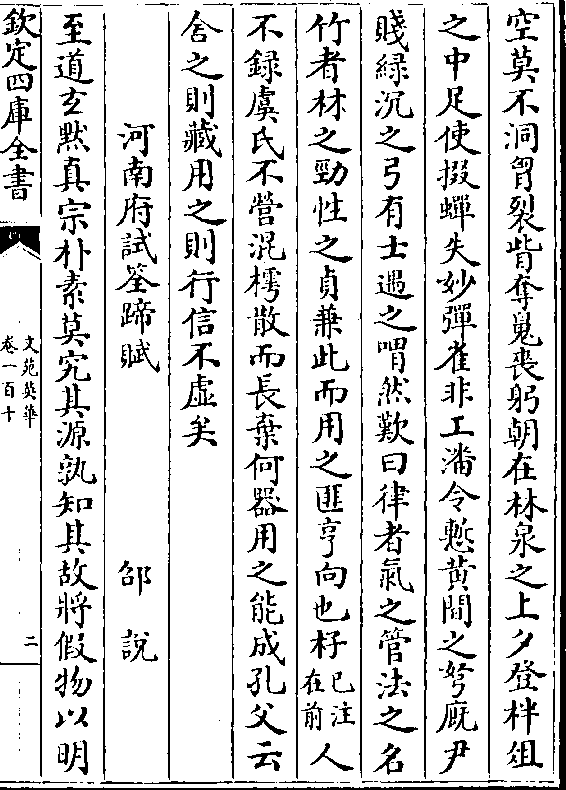 空莫不洞胷裂眥奪鬼喪躬朝在林泉之上夕登柈俎
之中足使掇蟬失妙彈雀非工潘令慙黄間之弩厩尹
賤緑沉之弓有士遇之喟然歎曰律者氣之管法之名
竹者材之勁性之貞兼此而用之匪亨向也杍已注在前人
不録虞氏不營混樗散而長棄何器用之能成孔父云
舍之則藏用之則行信不虚矣
河南府試筌蹄賦 邵說
至道玄黙真宗朴素莫究其源孰知其故將假物以明
欽定四庫全書
文苑英華
卷一百十
二